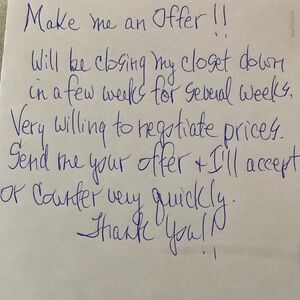 Make me an Offer !!
Will be closing my closet down
in a few weeks for several weeks.
Very willing to negotiate prices.
Send me your offer + I'll accept
or counter very quickly.
Thank You!!